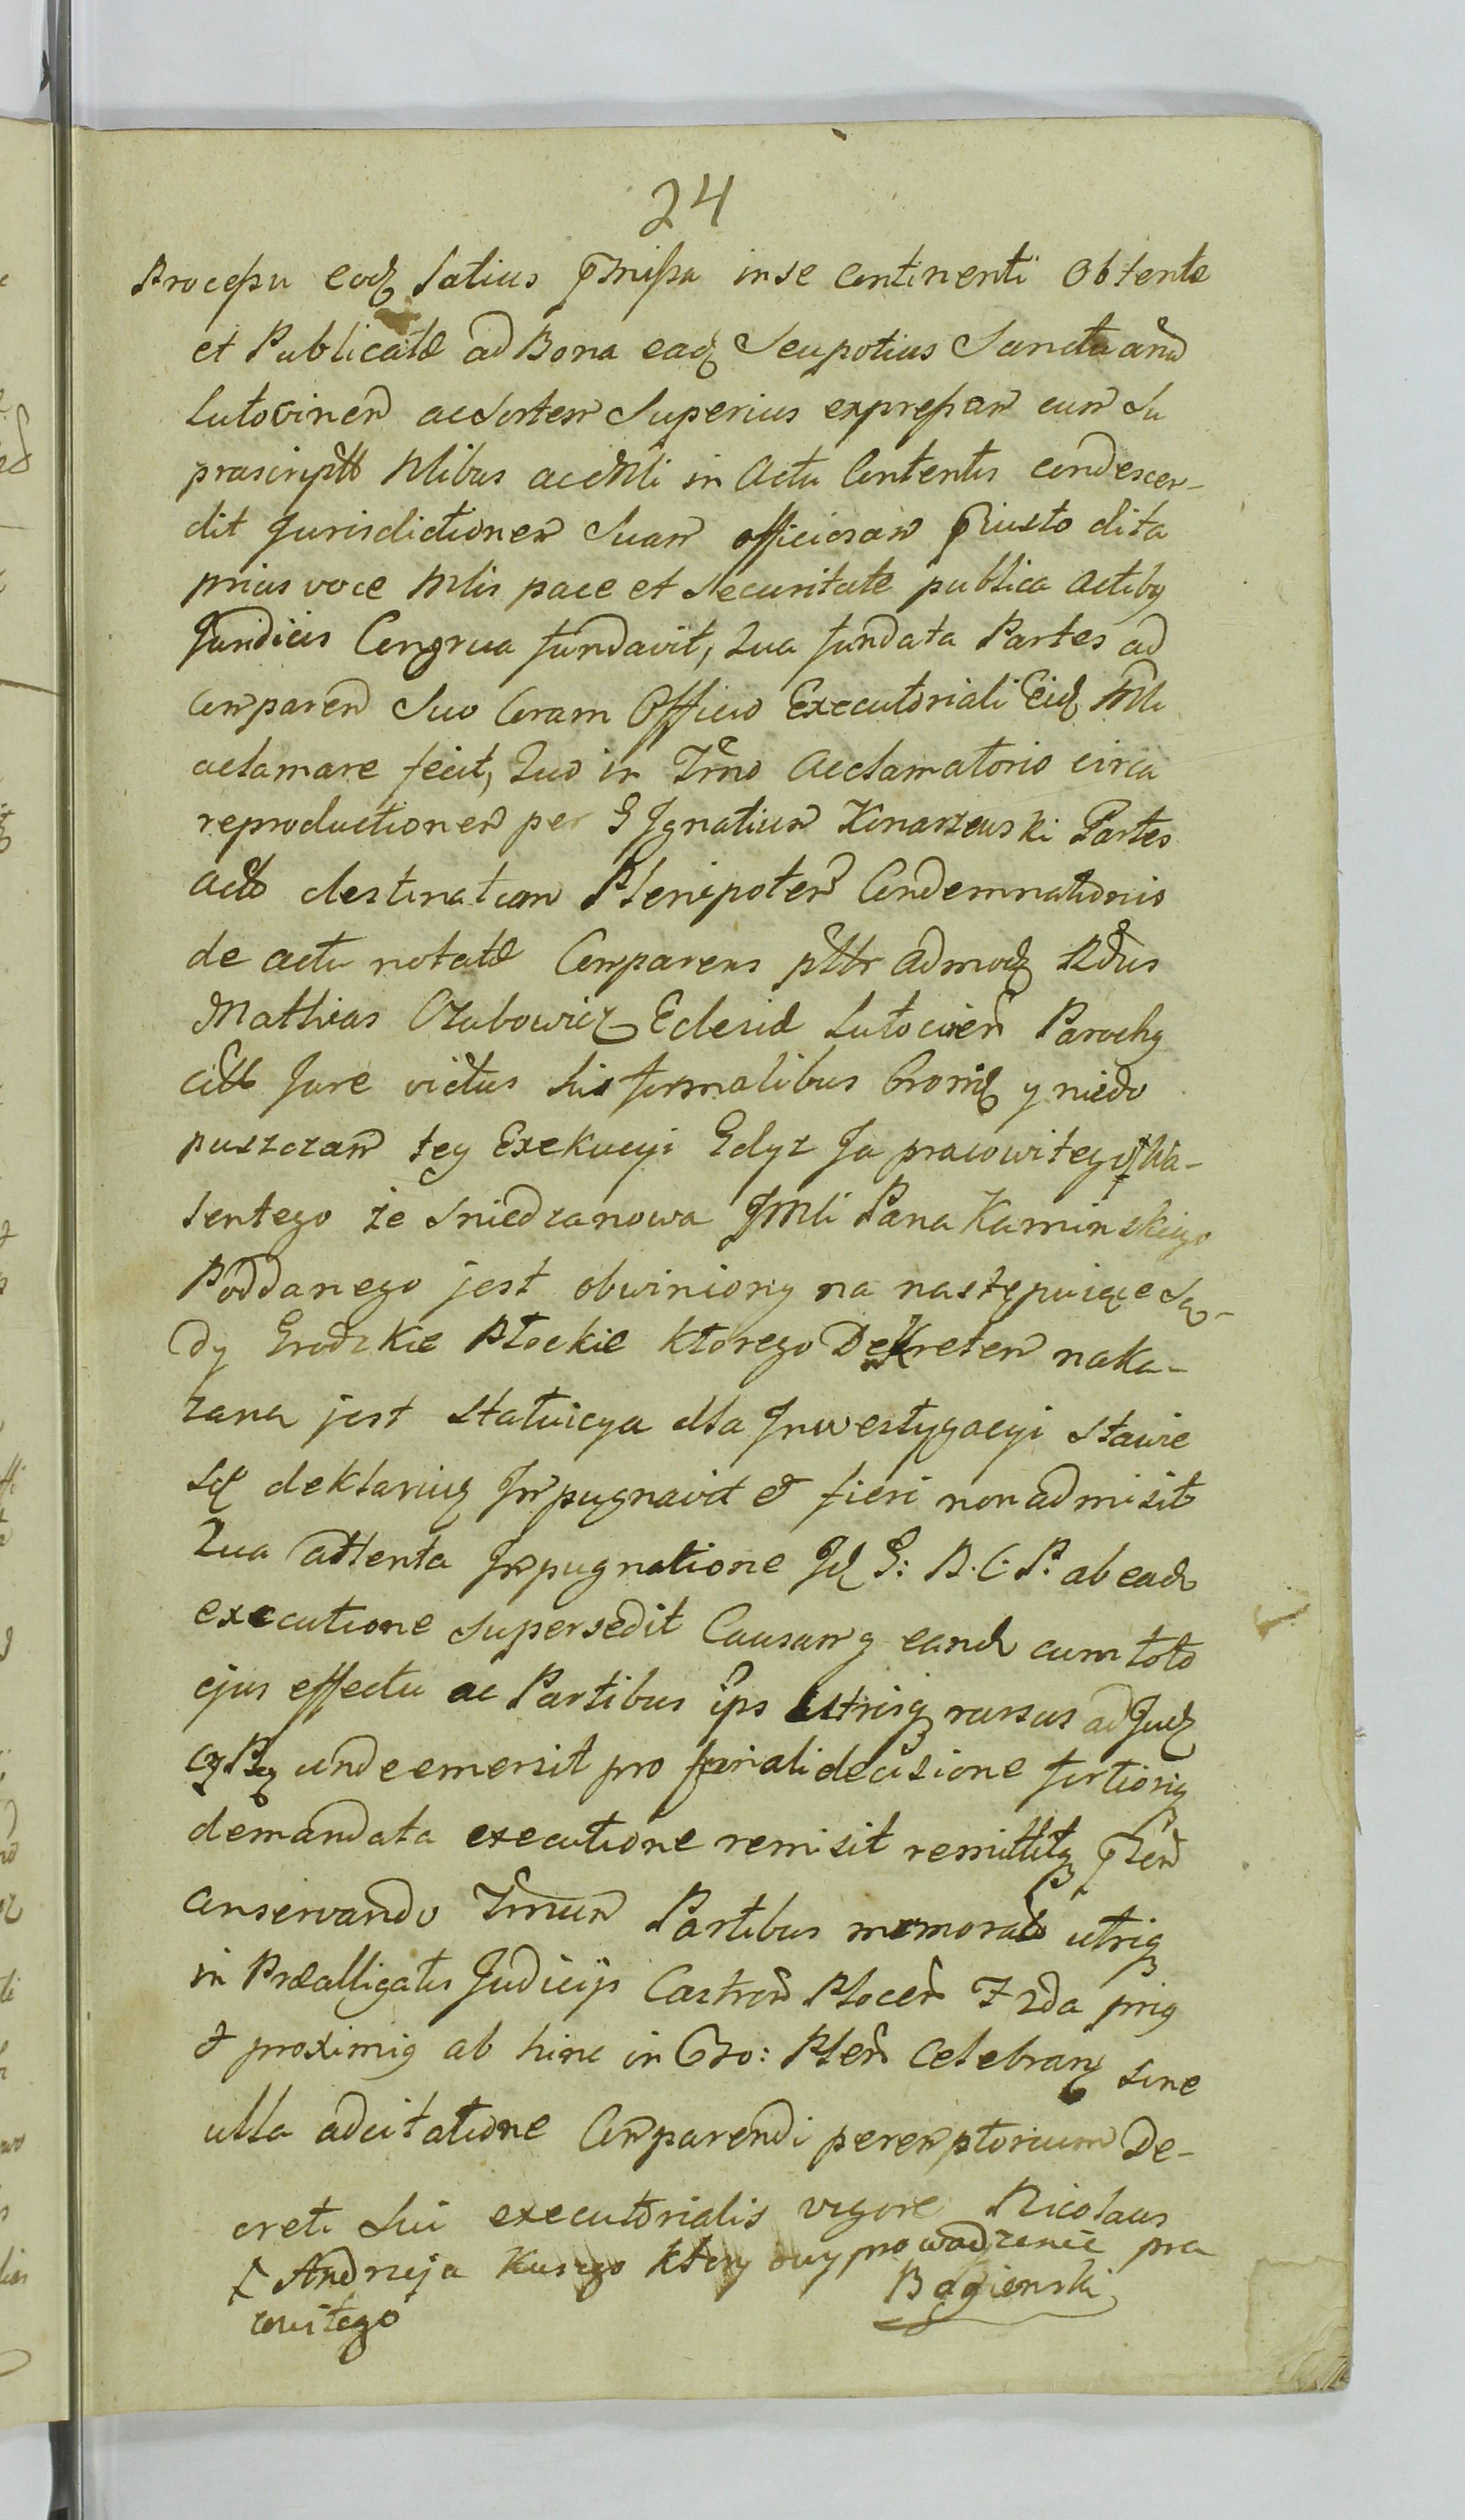 24
Processu eodq latius pmissa in se continenti obtente
et Publicate ad Bona eadq Seu potius Sancta and
Lutovinen ac Sortem Superius expressam cum Su
prascriptt Nlibus ac Mli in Actu Contentis condescen-
dit Jurisdictionem Suam officiosam Praeuisto dita
prius voce Mlis pace et Securitate publica actibq
Juridicis Congrua fundavit, Qua fundata Partes ad
Comparen Suo Coram Officio Executoriali Eidq Mli
aclamare fecit, Quo in Trno Acclamatorio circa
reproductionem per G Ignatium Konarzewski Partes
Actt destinatam Plenipoten Condemnationis
de actu notate Comparens pttr admodq Rdus
Mathias Czubowicz Eclesie Lutocien Parochq
citt Jure victus his formalibus Bronię y niedo
puszczam tey Exekucyi Gdyz Ja pracowitego Wa-
lentego ze Sniedzanowa JMli Pana Kaminskiego
Poddanego jest obwiniony na następuiące Są-
dy Grodzkie Płockie ktorego Dekretem naka-
zana jest statuicya dla Inwestygacyi stawie
Się deklaruię Impugnavit et fieri non admisit
Qua attenta Impugnatione Id G: B. C: P. ab eadq
executione supersedit Causamq eandq cum toto
ejus effectu ac Partibus ips Utrisq rursus ad Judq
undeemersit pro finali decisione fortiorig
demandata executione remisit remittitq pnen
conservando Trnum Partibus memorats utrisq
in Præalligatis Judicijs Castren Plocen Frda prig
& proximiq ab hinc in Cro: Plen Celebranq sine
ulla adcitatione Comparendi peremptorium De-
creti Sui executorialis vigore Nicolaus
Bagienski
Ŧ Andrzeja Kusego ktory o wyprowadzenie pra
cowitego